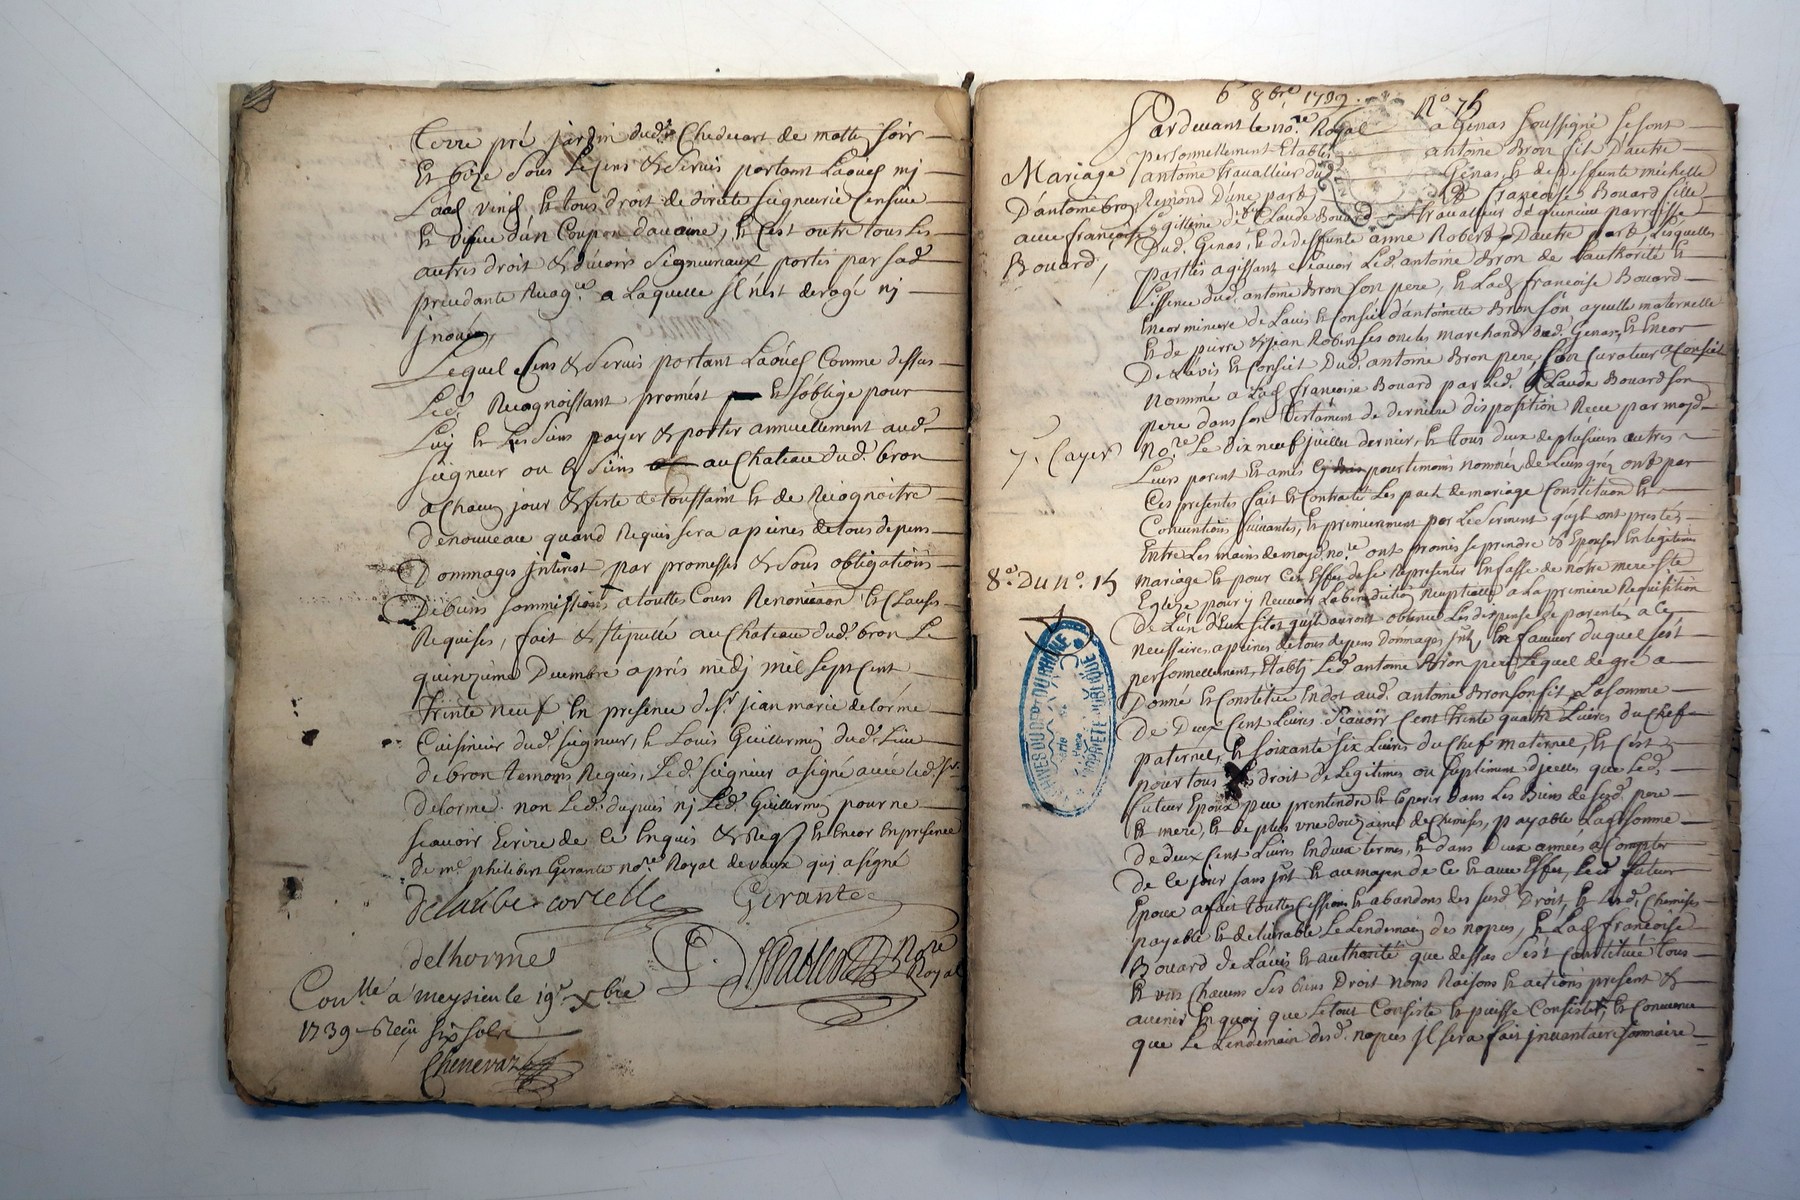 terre pré jardin dud. Sr Cheduart de matte soir
Et bize sous Le cens & servis portant Laoüs mj
Laods vings, Et tous droit de directe seigneurie Censive
autres droit & devoirs seigneuriaux portés par sad
precedante Recog.ce a Laquelle Jl n'est derogé nj
jnové
Lequel Cens & servis portant Laoüs Comme dessus
Led. Recognoissant promest Et s'oblige pour
Luy Et Les siens payer & porter annuellement aud.
seigneur ou es siens au Chateau dud. bron
a Chacun jour & feste de toussaint Et de Recognoitre
De nouveau quand Requis sera a peines de tous depens
Dommages jnterest, par promesses & sous obligations
De biens sommissions a touttes Cours Renonciaon Et Clauses
Requises, fait & stipullé au Chateau dud. bron Le
quinzieme Decembre aprés medj mil sept Cent
trinte neuf En presence de Sr jean marie delorme
Cuisinier dud. seigneur, Et Louis Guillermin dud. Lieu
de bron temoins Requis, Led. seigneur a signé avec led. Sr.
delorme non Led. dupuis nj Led. Guillermin pour ne
scavoir Ecrire de ce Enquis & Req Et Encor En presence
De me. philibert Gerante no.re Royal de vaux quj a signé
Gerante
delhorme
No.re Royal
Con.llé a meysieu le 19e Xbre
1739 Reçu six sols
Chenevaz
6 8bre 1739. No 75
Pardevant le no.re Royal a Genas soussigné se sont
personnellement Etablis antoine Bron fils d'autre
Mariage
antoine travailleur dud. Genas, Et de deffunte michelle
D'antoine bron
Remond D'une part, Françoise Bouard fille
avec françoise
Claude Bouard travailleur parroisse
Bouard,
Dud. Genas, Et de deffunte anne Robert D'autre part Lesquelles
partîes agissant scavoir Led. antoine Bron de L'authorité Et
Lissence dud. antoine Bron son pere, Et Lad. francoise Bouard
Encor mineure de L'avis Et Conseil d'antoinette Bron son ayeulle maternelle
Et de pierre & jean Robert ses oncles marchands dud. Genas, Et Encor
De L'avis Et Conseil Dud. antoine Bron pere son Curateur a Conseil
Nommé a Lad. francoise Bouard par Led. Claude Bouard son
pere dans son testament de derniere disposition Receu par moyd
7e Cayer
no.re Le dix neuf juillet dernier, Et tous deux de plusieurs autres
Leurs parent Et amis pour temoins nommés, de Leurs gréz ont par
Ces presentes fait Et Contracté Les pact de mariage Constitution Et
Conventions suivantes, Et premierement par Le serment qu'jls ont prestés
Entre Les mains de moyd. no.re ont promis se prendre & Epouser En legitime
8e. Du no. 15
mariage Et pour Cet Effet de se Representer En fasse de notre mere ste
Eglize pour y Recevoir La benediction Nuptialle a La premiere Requisition
De L'un d'Eux sitot qu'jls auront obtenu Les dispense de parenté a Ce
necessaires a peines de tous depens Dommages jnt, En faveur duquel s'est
personnellement Etablj Led. antoine Bron pere Lequel de gré a
Donné Et Constitué En dot aud. antoine Bron son fils La somme
De Deux Cent Livres scavoir Cent trinte quatre Livres du Chef
paternel, Et soixante six Livres du Chef maternel, Et C'est
pour tous droit de Legitimes ou suplement djcelles que Led.
futeur Epoux peu prentendre Et Esperér Dans Les Biens de sesd. pere
Et mere, Et de plus une douzaine de Chemises, payable Lad. somme
De deux Cent Livres En deux termes, Et dans Deux années a Compter
De Ce jour sans jnt Et au moyen de Ce Et avec Effet, Led. futeur
Epoux a fait touttes Cessions Et abandons des susd Droit, Et Lesd. Chemises
payable Et delivrable Le Lendemain des nopces, Et Lad. francoise
Bouard de L'avis Et authorité que dessus s'est Constitué tous
Et uns Chacuns ses biens Droit noms Raisons Et actions present &
avenir En quoy que Le tout Consiste Et puisse Consister, Et Convenu
que Le Lendemain desd. nopces Jl sera fait jnvantaire sommaire
ARCHIVES DU DEPT DU RHONE
PROPRIÉTÉ PUBLIQUE